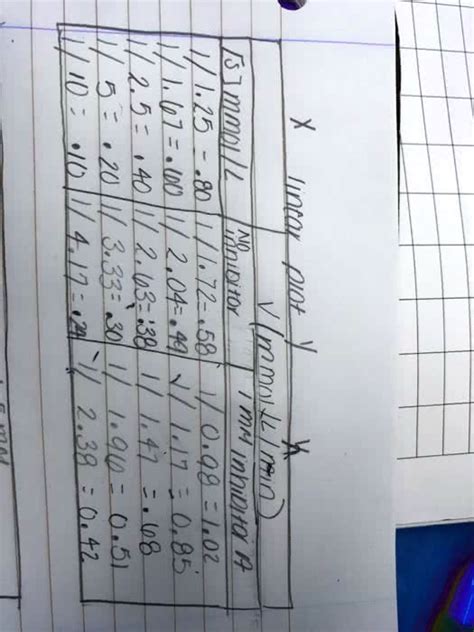 X linear plot Y
V (mmol/L/min)
[S] mmol/L No inhibitor 1 mM inhibitor A
1/1.25 = .80 1/1.72 = .58 1/0.98 = 1.02
1/1.67 = .60 1/2.04 = .49 1/1.17 = 0.85
1/2.5 = .40 1/2.63 = .38 1/1.47 = .68
1/5 = .20 1/3.33 = .30 1/1.96 = 0.51
1/10 = .10 1/4.17 = .24 1/2.38 = 0.42